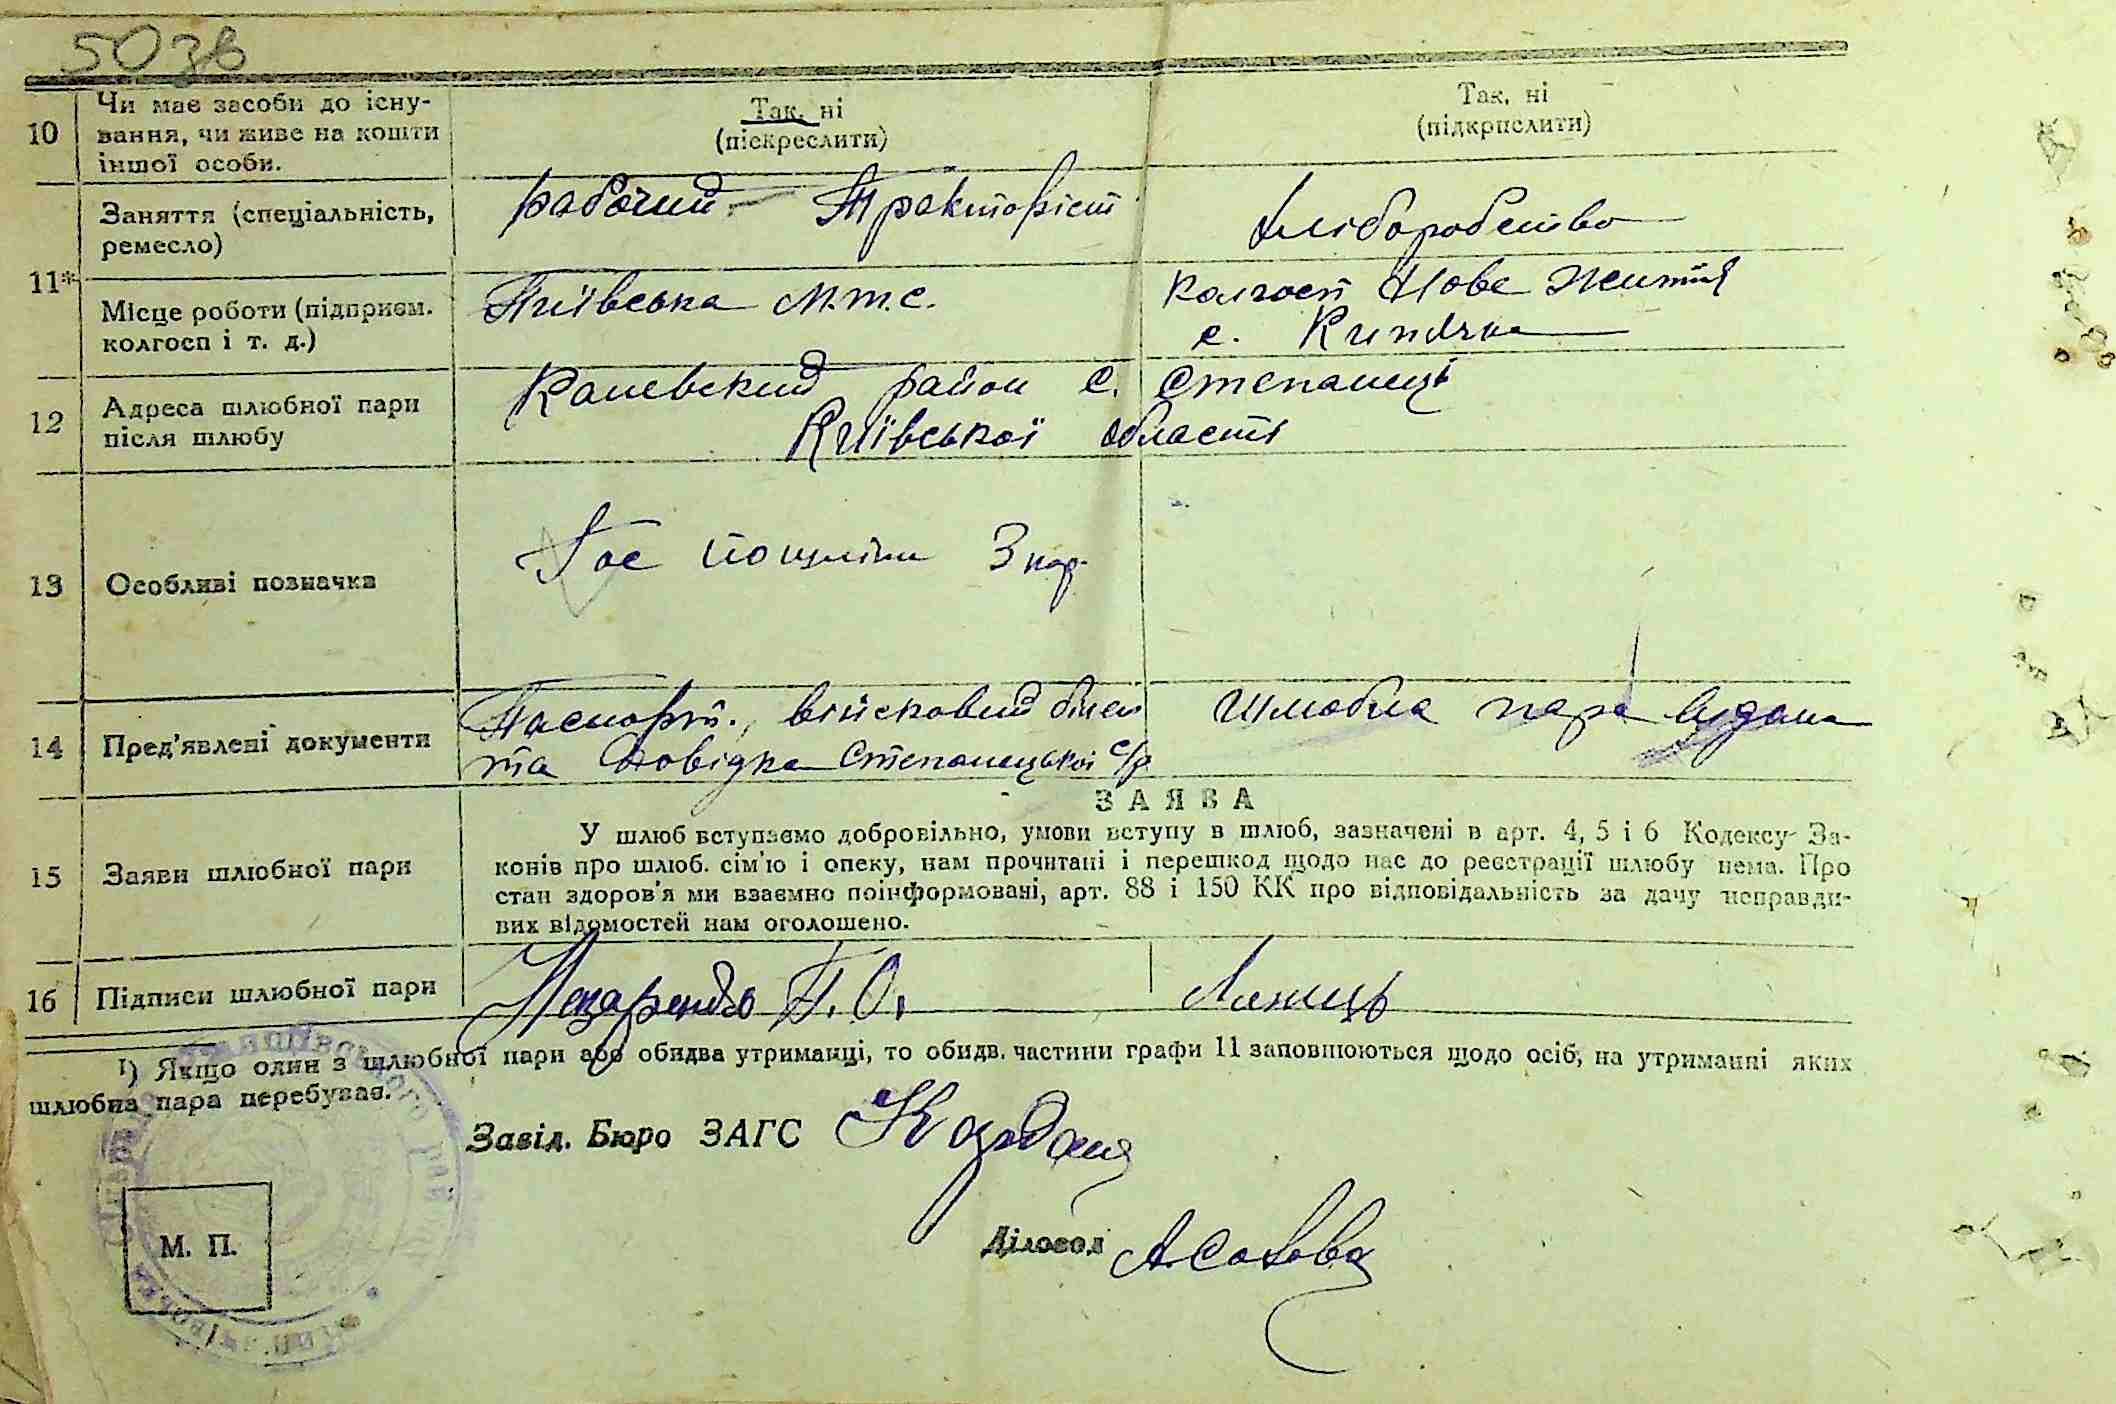 50 зв
10 Чи має засоби до існу-
вання, чи живе на кошти
іншої особи.
Так, ні
(піскреслити)
Так, ні
(підкрпслити)
11*
Заняття (спеціальність,
ремесло)
рабочий - Тракторіст
хліборобство
Місце роботи (підприєм.
колгосп і т. д.)
М.т.с.
колгосп Нове Життя
с. Кипячка
12 Адреса шлюбної пари
після шлюбу
Каневский район с. Степанеці
Київської області
13 Особливі позначка
Гос пошліни 3 кар.
14 Пред'явлені документи
Паспорт, військовий білет
та довідка Степанецької с/р
Шлюбна пара видана
15 Заяви шлюбної пари
ЗАЯВА
У шлюб вступаємо добровільно, умови вступу в шлюб, зазначені в арт. 4, 5 і 6 Кодексу За-
конів про шлюб. сім'ю і опеку, нам прочитані і перешкод щодо нас до реєстрації шлюбу нема. Про
стан здоров'я ми взаємно поінформовані, арт. 88 і 150 КК про відповідальність за дачу неправди-
вих відомостей нам оголошено.
16 Підписи шлюбної пари
П. О.
1) Якщо один з шлюбної пари або обидва утриманці, то обидв. частини графи 11 заповнюються щодо осіб, на утриманні яких
шлюбна пара перебуває.
Завід. Бюро ЗАГС
Діловод
М. П.